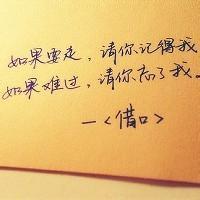 如果要走，请你记得我
如果难过，请你忘了我。
—<借口>